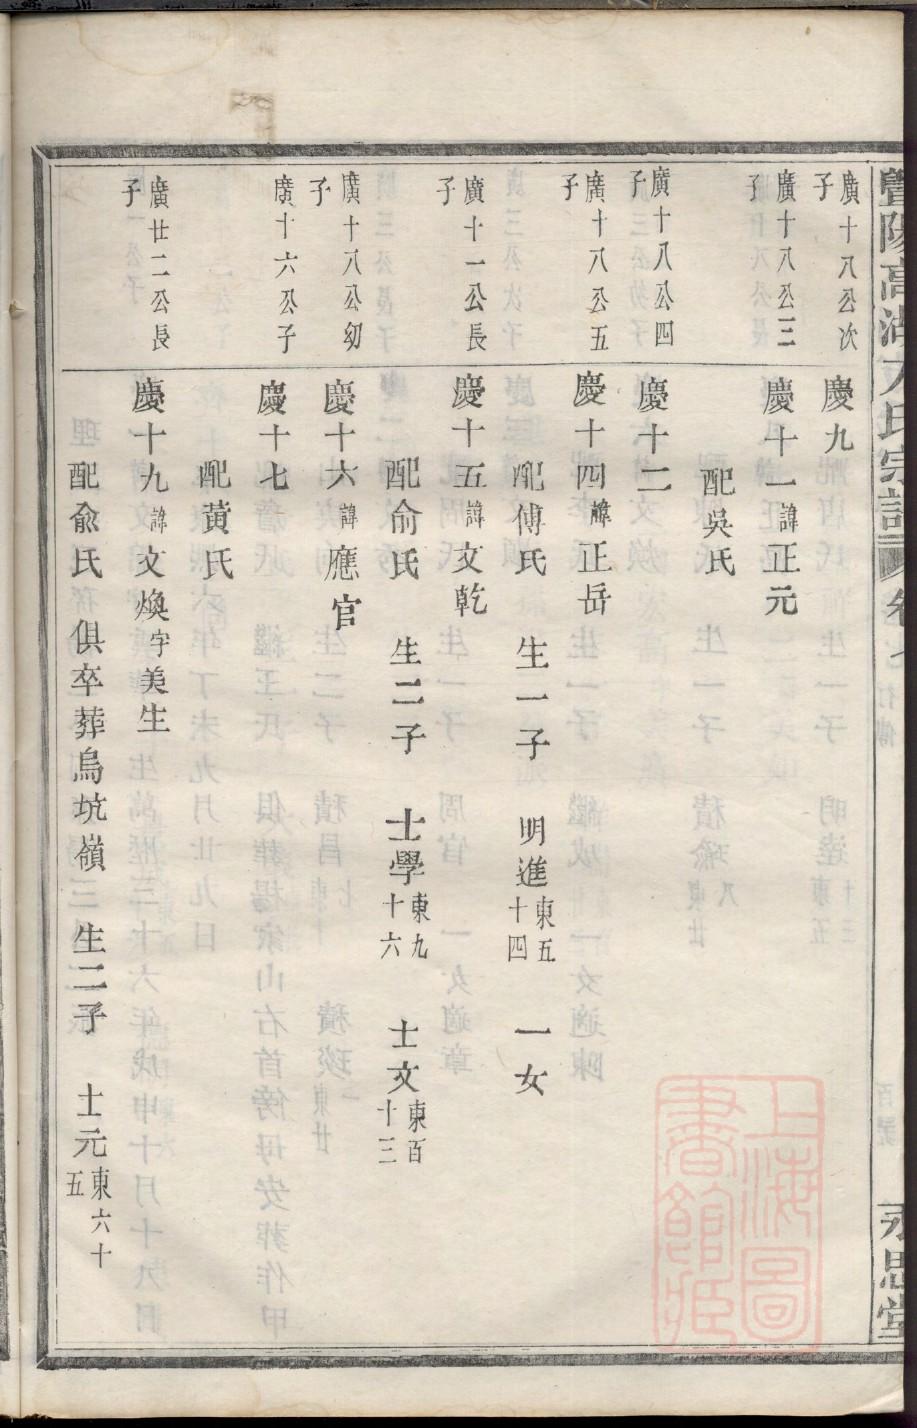 暨陽高湖方氏宗譜
永思堂
廣十八公次子
慶九
廣十八公三子
慶十一諱正元
配吳氏
廣十八公四子
慶十二
廣十八公五子
慶十四諱正岳
配傅氏 生一子 明進東五十四 一女
廣十一公長子
慶十五諱文乾
配俞氏 生二子 士學東九十六 士文東百十三
廣十八公幼子
慶十六諱應官
配黃氏
廣十六公子
慶十七
廣廿二公長子
慶十九諱文煥字美生
配俞氏俱卒葬烏坑嶺 生二子 士元東六十五
上海圖書館藏